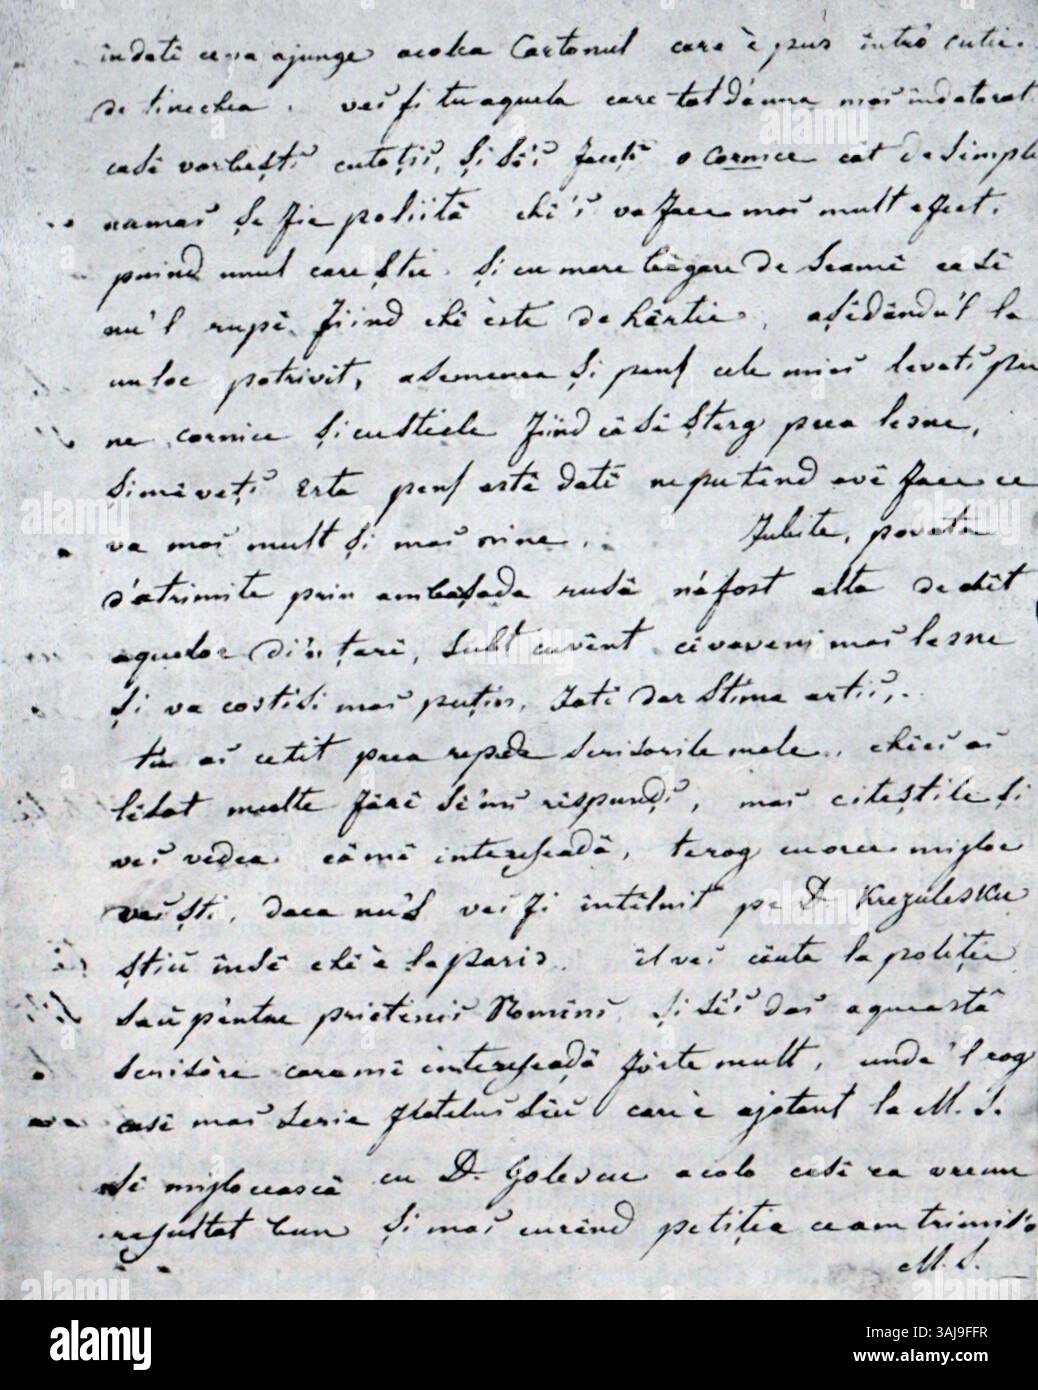 îndatĕ ce va ajunge acolea Cartonul care è pus întrô cutie
de tinechea. vei fi tu aquela care tot d'auna mai îndatorat
casĕ vorbeşti cutoţii, şi sĕ'i faceţi o Cornice cât de simplă
numai şe fie poliitâ chĕ'i va face mai mult efect.
puind unul care ştie. şi cu mare bĕgare de seamĕ ca sĕ
nu'l rupĕ fiind chĕ èste de hârtie, aşĕdându'l la
un loc potrivit, asemenea şi pens cele mici
ne cornice şi cu sticle fiind câ sĕ şterg prea lesne,
simĕveţi erta pens astĕ datĕ ne putênd avè face ce
va mai mult şi mai bine. Iubite,
d'atrimite prin ambasada rusâ n'afost alta decât
aquelor din ţarĕ, subt cuvênt cĕ va veni mai lesne
şi va costisi mai puţin. Iatĕ dar stima artii,.
tu ai cetit prea repede scrisorile mele. chĕci ai
lĕsat multe fârĕ sĕ'mi rĕspundi, mai citeştile şi
vei vedea. câ mĕ intereseadâ, terog cuorce migloc
vei şti. daca nu'l vei fi întĕlnit pe D. Krezulesku
ştiŭ însĕ chĕ è la Paris. il vei câuta la poliţie
saŭ pêntre prietenii Romîni. şi sĕ'i dai aqueastâ
scrisóre care mĕ intereseadâ fórte mult, unde'l rog
casĕ mai scrie fratelui sĕŭ care è ajotant la M. S.
sĕ miglocească cu D. Golescu acolo casĕ ea vreun
resultat bun şi mai curênd petiţia ce am trimis
M. S.
alamy
Image ID: 3AJ9FFR
www.alamy.com